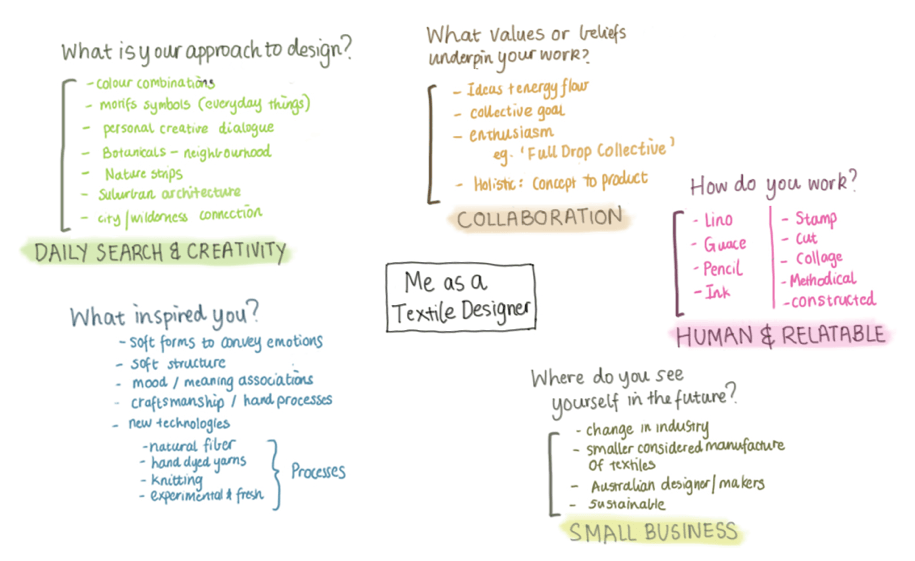 What is your approach to design?
- colour combinations
- motifs symbols (everyday things)
- personal creative dialogue
- Botanicals - neighbourhood
- Nature strips
- Suburban architecture
- city/wilderness connection
DAILY SEARCH & CREATIVITY
What values or beliefs
underpin your work?
- Ideas + energy flow
- collective goal
- enthusiasm
eg. 'Full Drop Collective'
- Holistic: Concept to product
COLLABORATION
How do you work?
- Lino
- Guace
- Pencil
- Ink
- Stamp
- Cut
- Collage
- Methodical
- constructed
HUMAN & RELATABLE
Me as a
Textile Designer
What inspired you?
- soft forms to convey emotions
- soft structure
- mood / meaning associations
- craftsmanship / hand processes
- new technologies
- natural fiber
- hand dyed yarns
- knitting
- experimental & fresh
Processes
Where do you see
yourself in the future?
- change in industry
- smaller considered manufacture
of textiles
- Australian designer/makers
- sustainable
SMALL BUSINESS